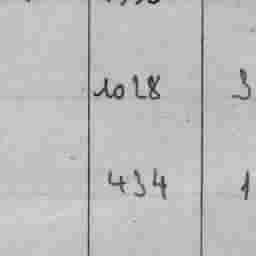 1028 3
434 1